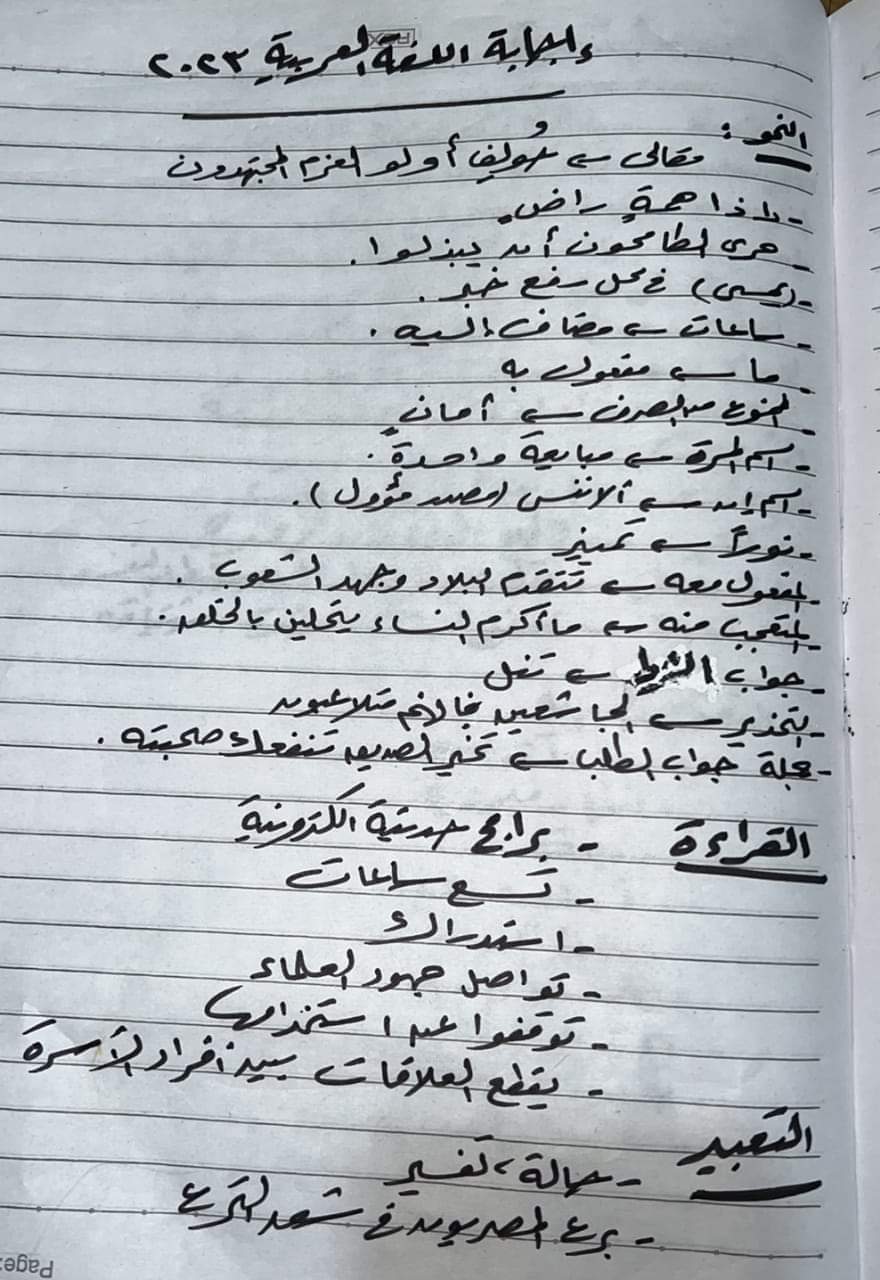 إجابة اللغة العربية ٢٠٢٣
النحو :
مقالى ← أولو العزم المجتهدون
- ذا همةٍ راضٍ
- حرى الطامحون أن يبذلوا .
- (يمسى) فى محل رفع خبر .
- ساعات ← مضاف إليه .
- ما ← مفعول به
- الممنوع من الصرف ← أمانٍ
- اسم المرة ← مبايعة واحدة .
- اسم إن ← ألا ننسى (مصدر مؤول) .
- نوراً ← تمييز
- المفعول معه ← تتقدم البلاد وجهد الشعوب .
- المتعجب منه ← ما أكرم النساء يتحلين بالخلق .
- جواب الشرط ← تنل
- التحذير ←
- جملة جواب الطلب ← تخير الصديق تنفعك صحبته .
القراءة - برامج حديثة الكترونية
- تسع ساعات
- استدراك
- تواصل جهود العلماء
- توقفوا عن استخدامها
- يقطع العلاقات بين أفراد الأسرة
التعبير
- رسالة ، تفسير
- برع المصريون فى شق الترع
Page: